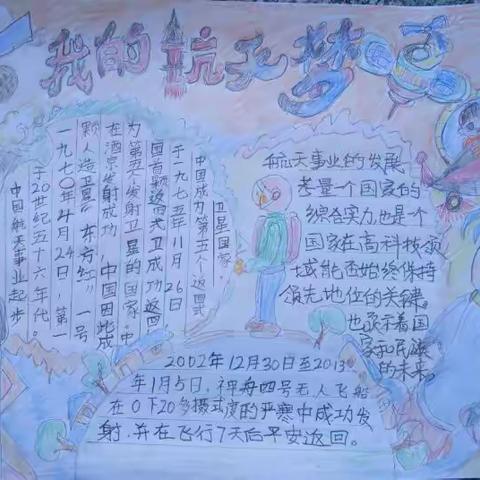 我的航天梦
中国航天事业起步
于20世纪五十六年代。
一九七0年4月24日，第一
颗人造卫星"东方红"一号
在酒泉发射成功，中国因此成
为第五个发射卫星的国家。中
国首颗返回式卫成功返回
于一九七五年11月26日
中国成为第五个返回式
卫星国家。
航天事业的发展
考量一个国家的
综合实力也是一个
国家在高科技领
域能否始终保持
领先地位的关键。
也预示着国
家和民族
的未来。
2002年12月30日至2013
年1月5日，神舟四号无人飞船
在0下20多摄式度的严寒中成功发
射，并在飞行7天后平安返回。